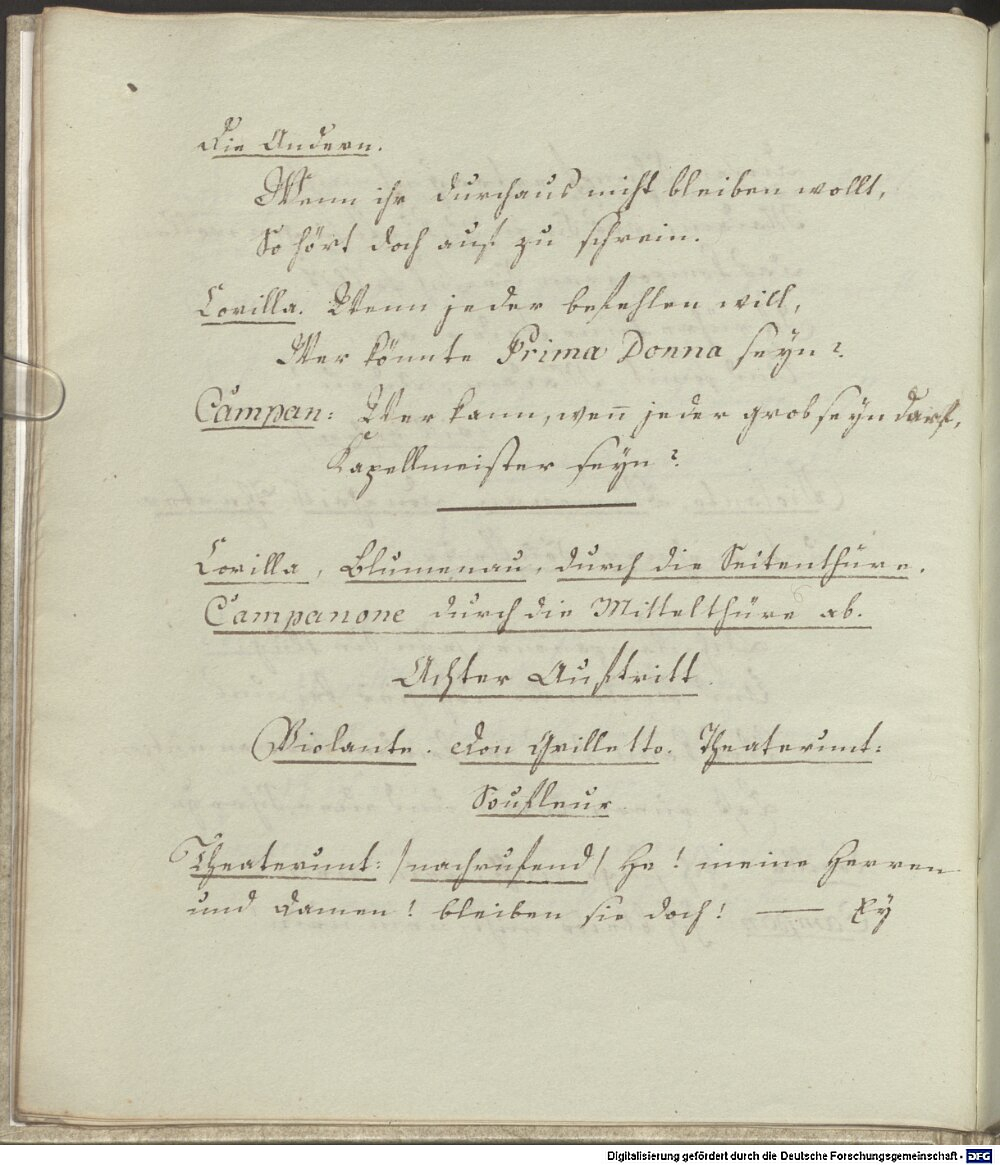 Die Andern.
Wenn ihr durchaus nicht bleiben wollt,
So hört doch auf zu schrein.
Corilla. Wenn jeder befehlen will,
Wer könnte Prima Donna seyn?
Campan: Wer kann, weñ jeder grob seyn darf,
Kapellmeister seyn?
Corilla, Blumenau, durch die Seitenthüre.
Campanone durch die Mittelthüre ab.
Achter Auftritt.
Violante. Don Grilletto. Theaterunt:
Soufleur
Theaterunt: /nachrufend/ He! meine Herren
und Damen! bleiben sie doch! — Ey
Digitalisierung gefördert durch die Deutsche Forschungsgemeinschaft - DFG